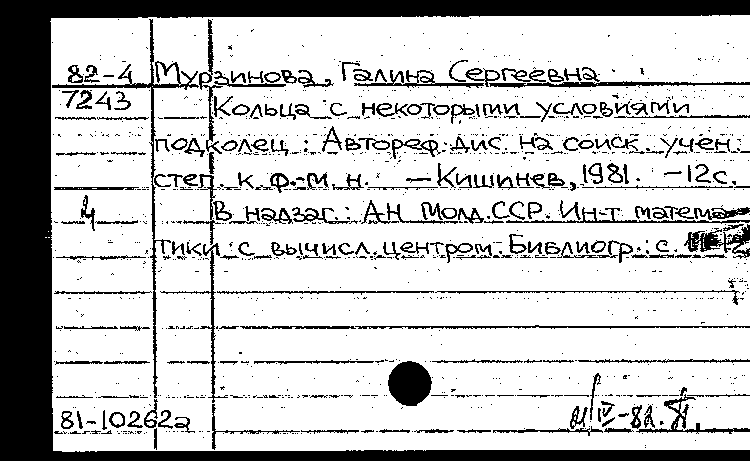 82-4 Мурзинова, Галина Сергеевна
7243 Кольца с некоторыми условиями
подколец : Автореф. дис. на соиск. учен.
степ. к. ф.-м. н. — Кишинев, 1981. - 12 с.
В надзаг.: АН Молд. ССР. Ин-т матема-
тики с вычисл. центром. Библиогр.: с.
81-10262а
IV-82.